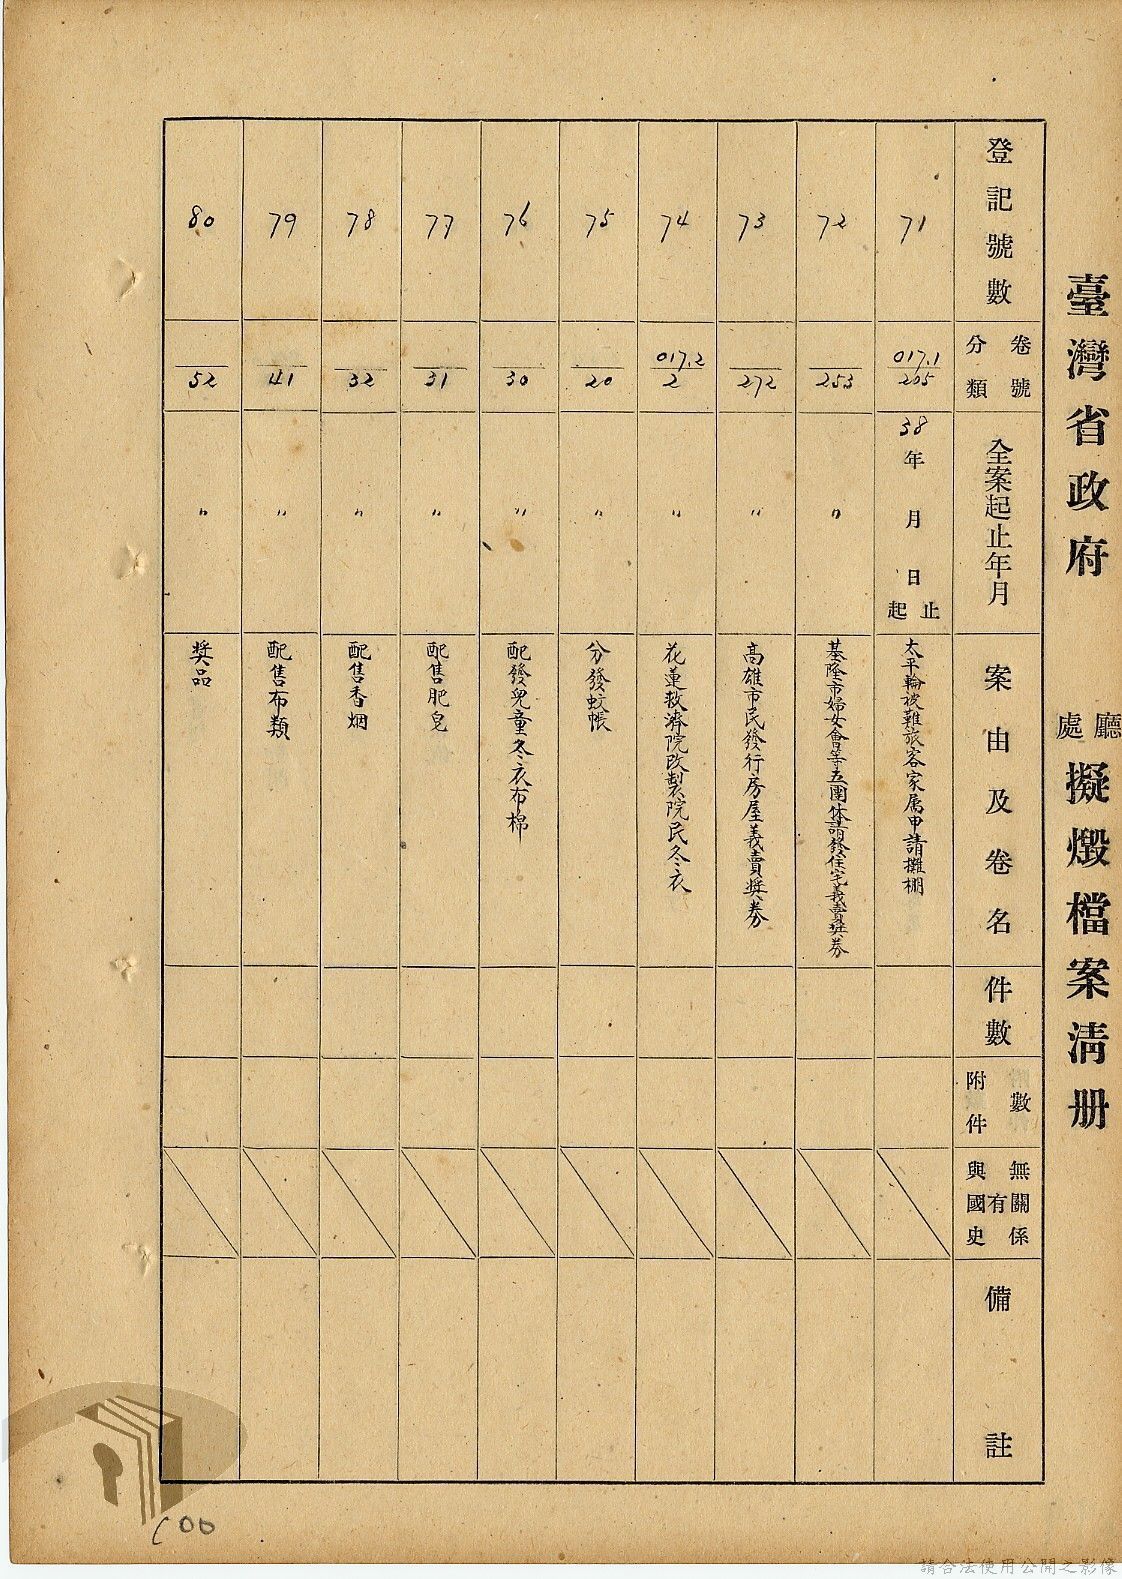 臺灣省政府 廳處 擬燬檔案清册
登記號數
分類卷號
全案起止年月
案由及卷名
件數
附件數
與國史有無關係
備註
71
017.1/205
38年 月 日起止
太平輪被難旅客家属申請攤棚
72
253
〃
基隆市婦女會等五團体請發住宅義賣獎券
73
272
〃
高雄市民發行房屋義賣獎券
74
017.2/2
〃
花蓮救濟院改製院民冬衣
75
20
〃
分發蚊帳
76
30
〃
配發兒童冬衣布棉
77
31
〃
配售肥皂
78
32
〃
配售香烟
79
41
〃
配售布類
80
52
〃
獎品
100
請合法使用公開之影像